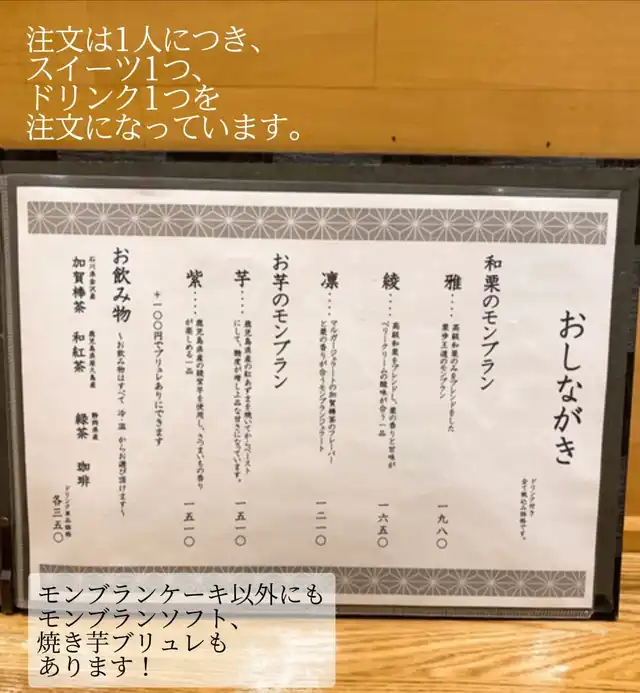 注文は1人につき、
スイーツ1つ、
ドリンク1つを
注文になっています。
おしながき
ドリンク付き
全て税込み価格です。
和栗のモンブラン
雅‥‥
高級和栗のみをブレンドをした
栗歩王道のモンブラン
一九八〇
綾‥‥
高級和栗をブレンドし、栗の香りと甘味が
ベリークリームの酸味が合う一品
一六五〇
凛‥‥
マルガージェラートの加賀棒茶のフレーバー
と栗の香りが合うモンブランジェラート
一二一〇
お芋のモンブラン
芋‥‥
鹿児島浜産の紅あずまを焼いてからペースト
にして、糖度が増し上品な甘さになっています。
一五一〇
紫‥‥
鹿児島浜産の綾紫芋を使用し、さつまいもの香り
が楽しめる一品
一五一〇
+一〇〇円でブリュレありにできます
お飲み物
~お飲み物はすべて 冷・温 からお選び頂けます~
石川県金沢産
加賀棒茶
鹿児島県屋久島産
和紅茶
静岡県産
緑茶
珈琲
ドリンク単品価格
各三五〇
モンブランケーキ以外にも
モンブランソフト、
焼き芋ブリュレも
あります!